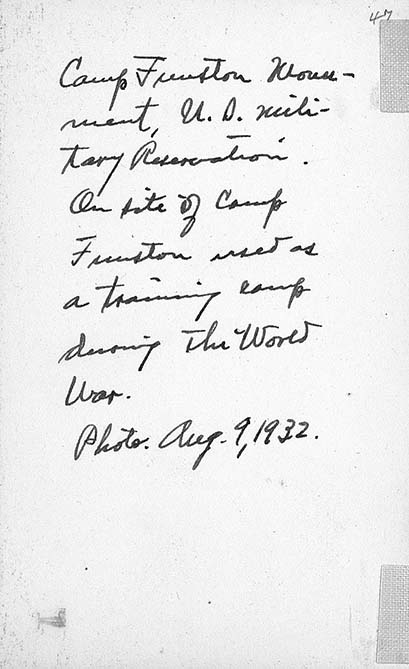 47
Camp Funston Monu-
ment, U.S. mili-
tary Reservation.
On site of Camp
Funston used as
a training camp
during the World
War.
Photo. Aug. 9, 1932.